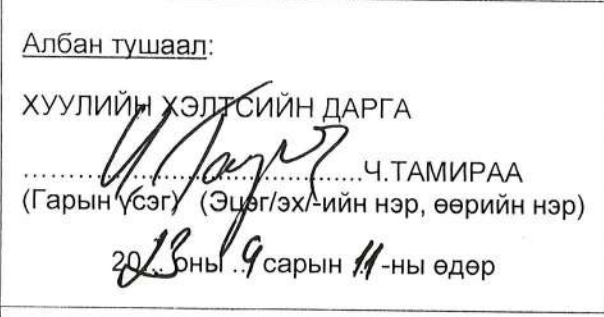 Албан тушаал:
ХУУЛИЙН ХЭЛТСИЙН ДАРГА
........................................Ч.ТАМИРАА
(Гарын үсэг) (Эцэг/эх/-ийн нэр, өөрийн нэр)
2023 оны ..9 сарын 11 -ны өдөр